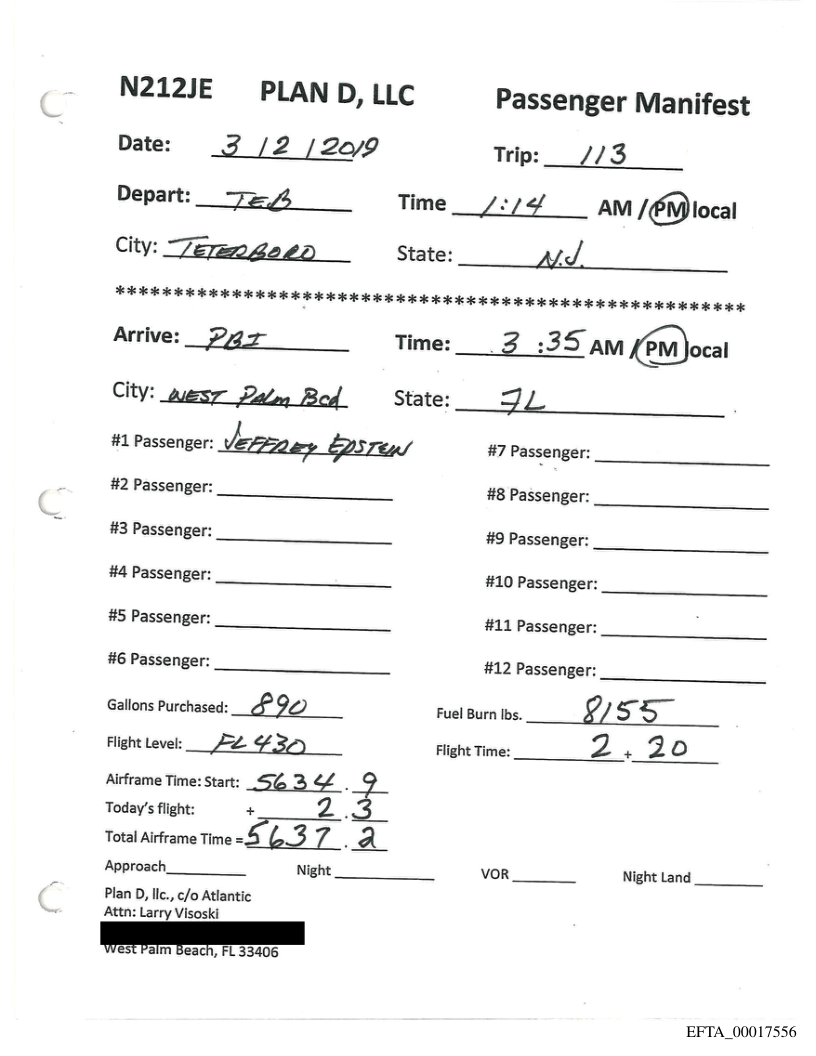 N212JE PLAN D, LLC Passenger Manifest
Date: 3 / 2 / 2019 Trip: 113
Depart: TEB Time 1:14 AM / PM local
City: TETERBORO State: N.J.
******************************************************
Arrive: PBI Time: 3 :35 AM / PM local
City: WEST Palm Bcd State: FL
#1 Passenger: JEFFREY EPSTEIN #7 Passenger:
#2 Passenger: #8 Passenger:
#3 Passenger: #9 Passenger:
#4 Passenger: #10 Passenger:
#5 Passenger: #11 Passenger:
#6 Passenger: #12 Passenger:
Gallons Purchased: 890 Fuel Burn lbs. 8155
Flight Level: FL 430 Flight Time: 2 + 20
Airframe Time: Start: 5634 . 9
Today's flight: + 2 . 3
Total Airframe Time = 5637 . 2
Approach Night VOR Night Land
Plan D, llc., c/o Atlantic
Attn: Larry Visoski
West Palm Beach, FL 33406
EFTA_00017556